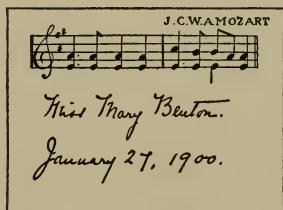 J.C.W.A.MOZART
Miss Mary Benton.
January 27, 1900.